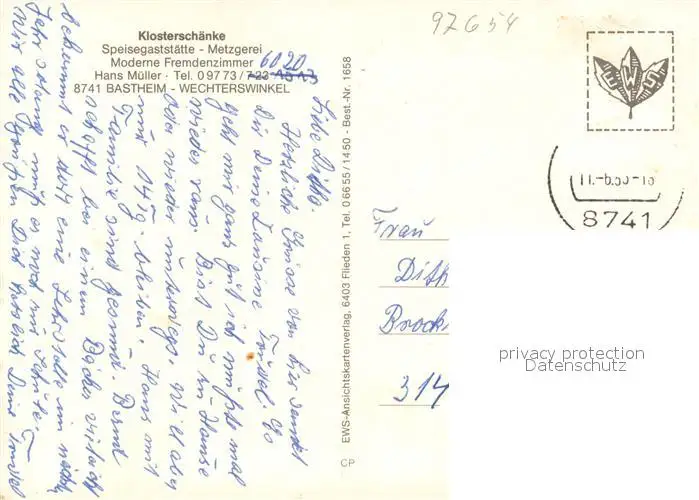 97654
Klosterschänke
Speisegaststätte - Metzgerei
Moderne Fremdenzimmer
6020
Hans Müller · Tel. 0 97 73 /
8741 BASTHEIM - WECHTERSWINKEL
Liebe Ditta.
Herzliche Grüsse von hier sendet
Dir Deine Cousine Trudel. Es
geht mir ganz gut ich müsste mal
wieder raus. Bist Du zu Hause
oder wieder unterwegs, will aber
nur 8 Tg. bleiben. Hans mit
Familie sind gesund. Bernd
hofft bei einem Bäcker vielleicht
bekommt er dort eine Lehrstelle im nächsten
Jahr solang muß er noch zur Schule.
Wir alle grüßen Dich herzlich Deine Trudel
EWS-Ansichtskartenverlag, 6403 Flieden 1, Tel. 0 66 55 / 14 50 - Best.-Nr. 1658
CP
EWS
8741
Frau
Ditt
Brock
314
privacy protection
Datenschutz